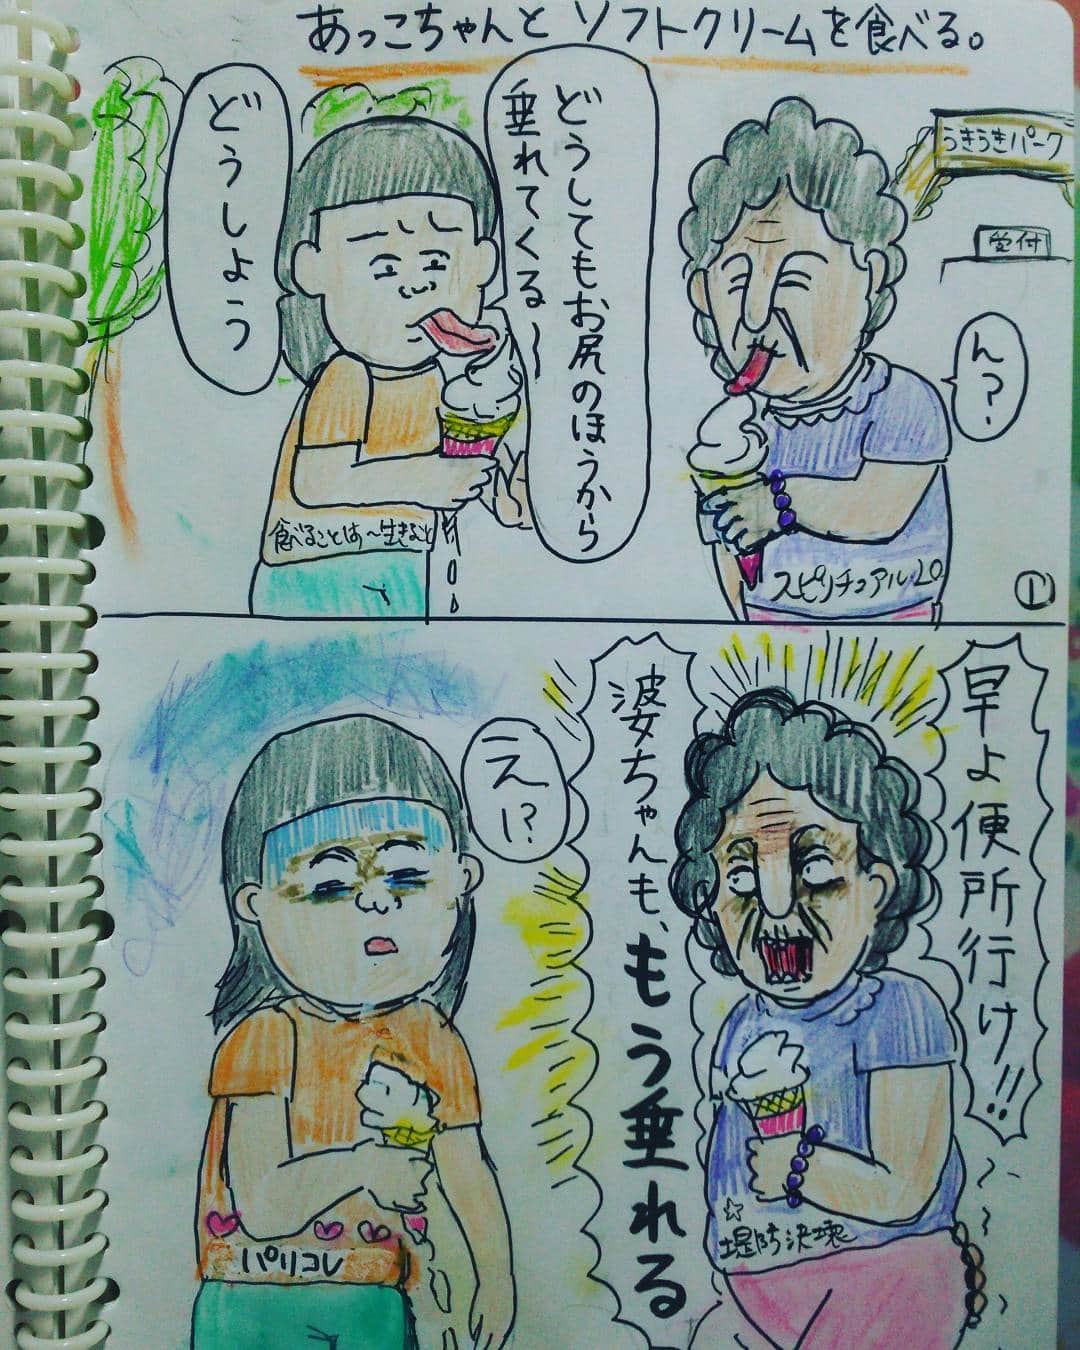 あっこちゃんと ソフトクリームを食べる。
うきうきパーク
受付
ん?
どうしても お尻のほうから
垂れてくる〜
どうしよう
食べることは〜生きること
スピリチュアル20
①
早よ便所行け!!
婆ちゃんも、もう垂れる
え!?
パリコレ
☆
堤防決壊